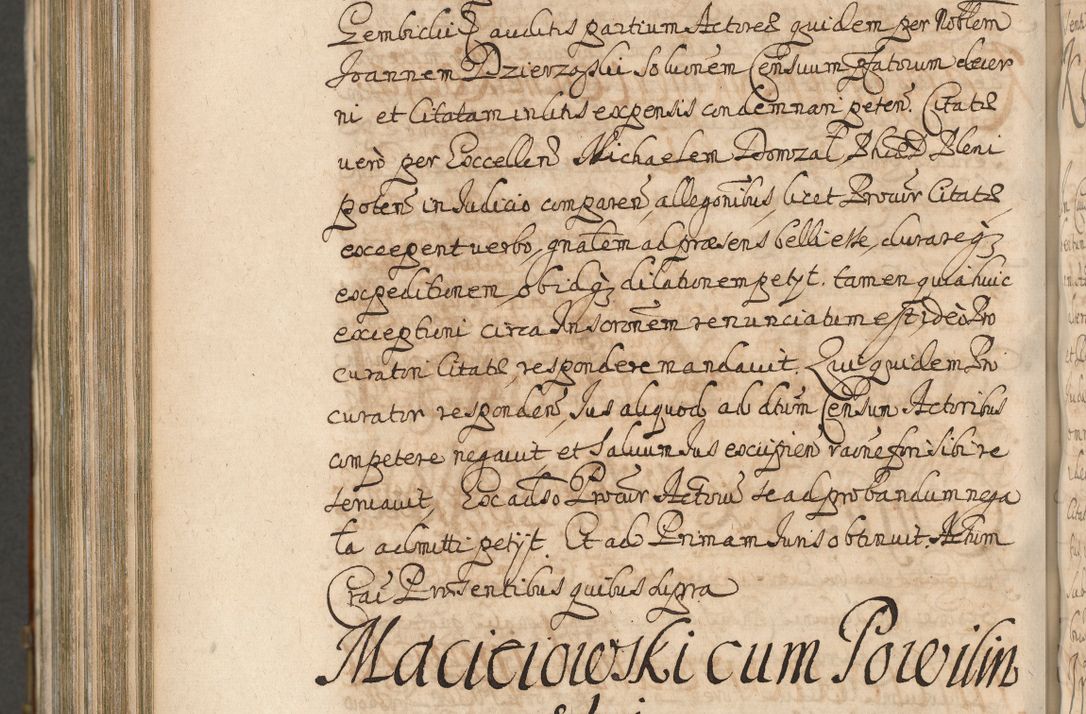 Gembiclii auditis partium Actores quidem per Noblem
Joannem Dzierzoski Solutionem Censuum pfatorum decer
ni et Citatam in litis expensis condemnari peten. Citatæ
vero per Excellen Michaelem Domzal Phiæ D Pleni
poten in Judicio comparen, allegonibus, licet Procur Citatæ
exceperit verbo, gnalem ad præsens belli esse, durareq
expeditionem, ob idq dilationem petyt. tamen quia huic
exceptioni circa Inscronem renunciatum est, ideo Pro
curatori Citatæ, respondere mandavit. Qui quidem Pro
curator responden, Jus aliquod ad dtum Censum Actoribus
competere negavit, et salvum Jus excipien raone fori sibi re
servavit, Ex adso Procur Actorum se ad probandum nega
ta admitti petyt. Et ad Primam Juris obtinuit. Actum
Crai Præsentibus quibus supra
Maciciowski cum Powilin